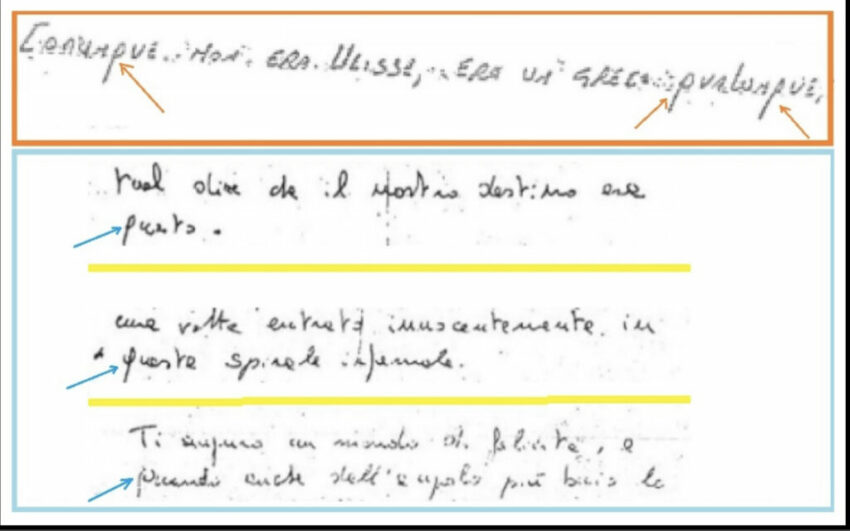 COMUNQUE.. NON. ERA. ULISSE, .. ERA UN GRECO QUALUNQUE,
vuol dire che il nostro destino era
questo.
una volta entrato innocentemente in
questa spirale infernale.
Ti auguro un mondo di felicità, e
quando anche dell'angolo più buio la